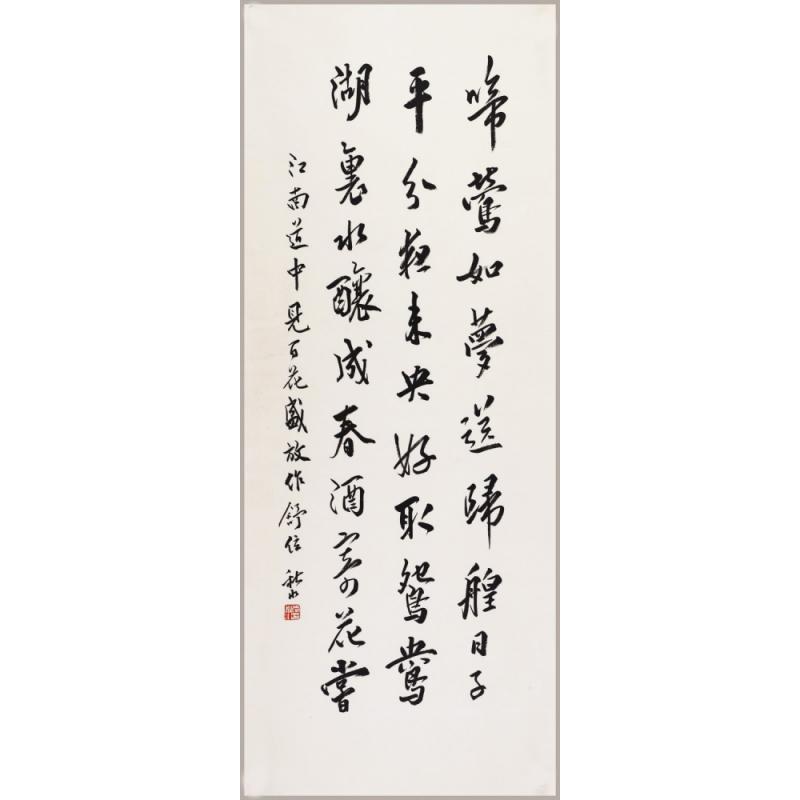 啼鶯如夢送歸艎日子
平分夜未央好取鴛鴦
湖裏水釀成春酒寄花嘗
江南道中見百花盛放作舒位 秋水